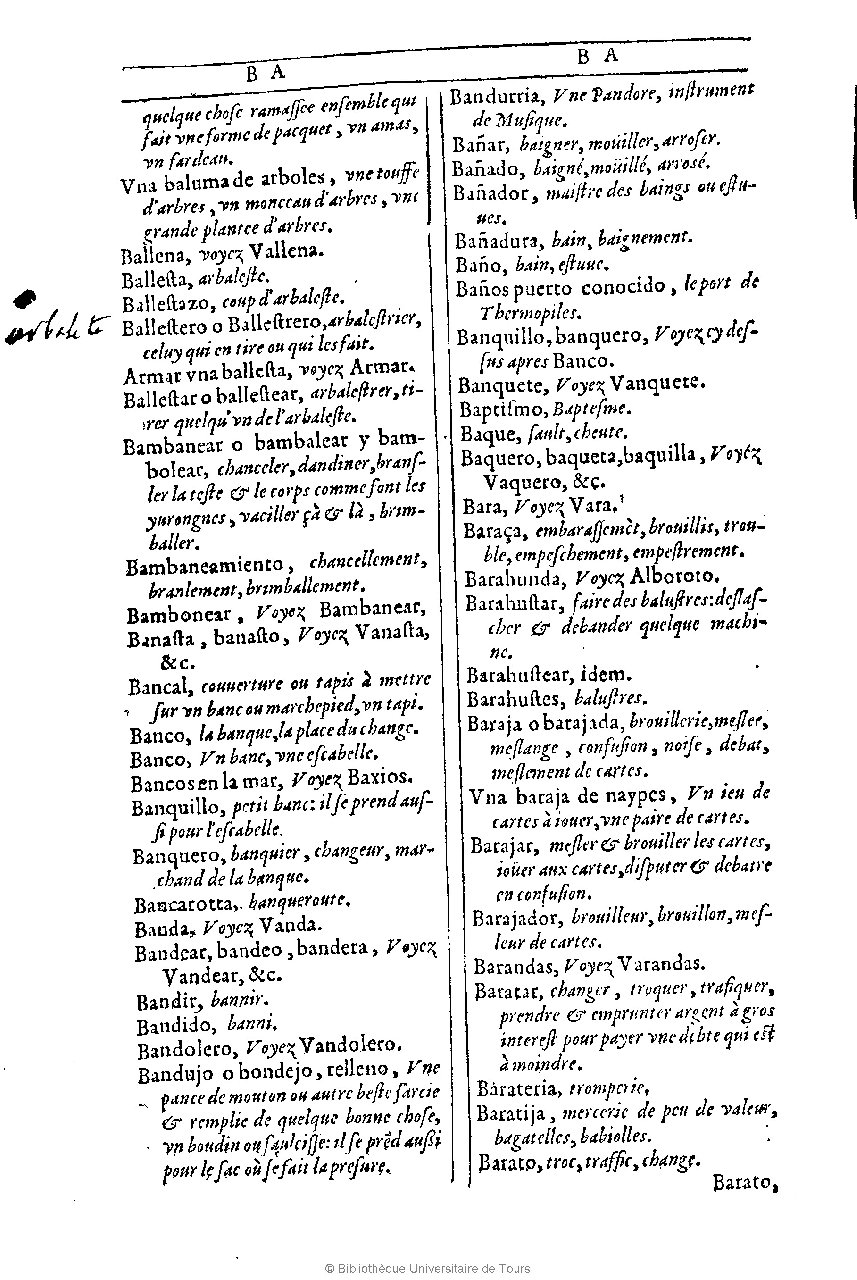 B A
quelque chose ramaſſee enſemble qui
fait vne forme de pacquet, vn amas,
vn fardeau.
Vna baluma de arboles, vne touffe
d'arbres, vn monceau d'arbres, vne
grande plantee d'arbres.
Ballena, voyez Vallena.
Balleſta, arbaleſte.
Balleſtazo, coup d'arbaleſte.
arbalete
Balleſtero o Balleſtrero, arbaleſtrier,
celuy qui en tire ou qui les fait.
Armar vna balleſta, voyez Armar.
Balleſtar o balleſtear, arbaleſtrer, ti-
rer quelqu'vn de l'arbaleſte.
Bambanear o bambalear y bam-
bolear, chanceler, dandiner, branſ-
ler la teſte & le corps comme font les
yurongnes, vaciller çà & là, brim-
baller.
Bambaneamiento, chancellement,
branlement, brimballement.
Bambonear, Voyez Bambanear,
Banaſta, banaſto, Voyez Vanaſta,
&c.
Bancal, couuerture ou tapis à mettre
ſur vn banc ou marchepied, vn tapi.
Banco, la banque, la place du change.
Banco, Vn banc, vne eſcabelle.
Bancos en la mar, Voyez Baxios.
Banquillo, petit banc: il ſe prend auſ-
ſi pour l'eſcabelle.
Banquero, banquier, changeur, mar-
chand de la banque.
Bancarotta, banqueroute.
Banda, Voyez Vanda.
Bandear, bandeo, bandera, Voyez
Vandear, &c.
Bandir, bannir.
Bandido, banni.
Bandolero, Voyez Vandolero.
Bandujo o bondejo, relleno, Vne
pance de mouton ou autre beſte farcie
& remplie de quelque bonne choſe,
vn boudin ou ſaulciſſe: il ſe prẽd auſſi
pour le ſac où ſe fait la preſure.
B A
Bandurria, Vne Pandore, inſtrument
de Muſique.
Bañar, baigner, moüiller, arroſer.
Bañado, baigné, moüillé, arrosé.
Bañador, maiſtre des baings ou eſtu-
ues.
Bañadura, bain, baignement.
Baño, bain, eſtuue.
Baños puerto conocido, le port de
Thermopiles.
Banquillo, banquero, Voyez cy deſ-
ſus apres Banco.
Banquete, Voyez Vanquete.
Baptiſmo, Bapteſme.
Baque, ſault, cheute.
Baquero, baqueta, baquilla, Voyéz
Vaquero, &c.
Bara, Voyez Vara.
Baraça, embaraſſemẽt, brouillis, trou-
ble, empeſchement, empeſtrement.
Barahunda, Voyez Alboroto.
Barahuſtar, faire des baluſtres: deſlaſ-
cher & debander quelque machi-
ne.
Barahuſtear, idem.
Barahuſtes, baluſtres.
Baraja o barajada, brouillerie, meſlee,
meſlange, confuſion, noiſe, debat,
meſlement de cartes.
Vna baraja de naypes, Vn ieu de
cartes à iouer, vne paire de cartes.
Barajar, meſler & brouiller les cartes,
ioüer aux cartes, diſputer & debatre
en confuſion.
Barajador, brouilleur, brouillon, meſ-
leur de cartes.
Barandas, Voyez Varandas.
Baratar, changer, troquer, trafiquer,
prendre & emprunter argent à gros
intereſt pour payer vne debte qui eſt
à moindre.
Barateria, tromperie,
Baratija, mercerie de peu de valeur,
bagatelles, babiolles.
Barato, troc, traffic, change.
Barato,
© Bibliothèque Universitaire de Tours